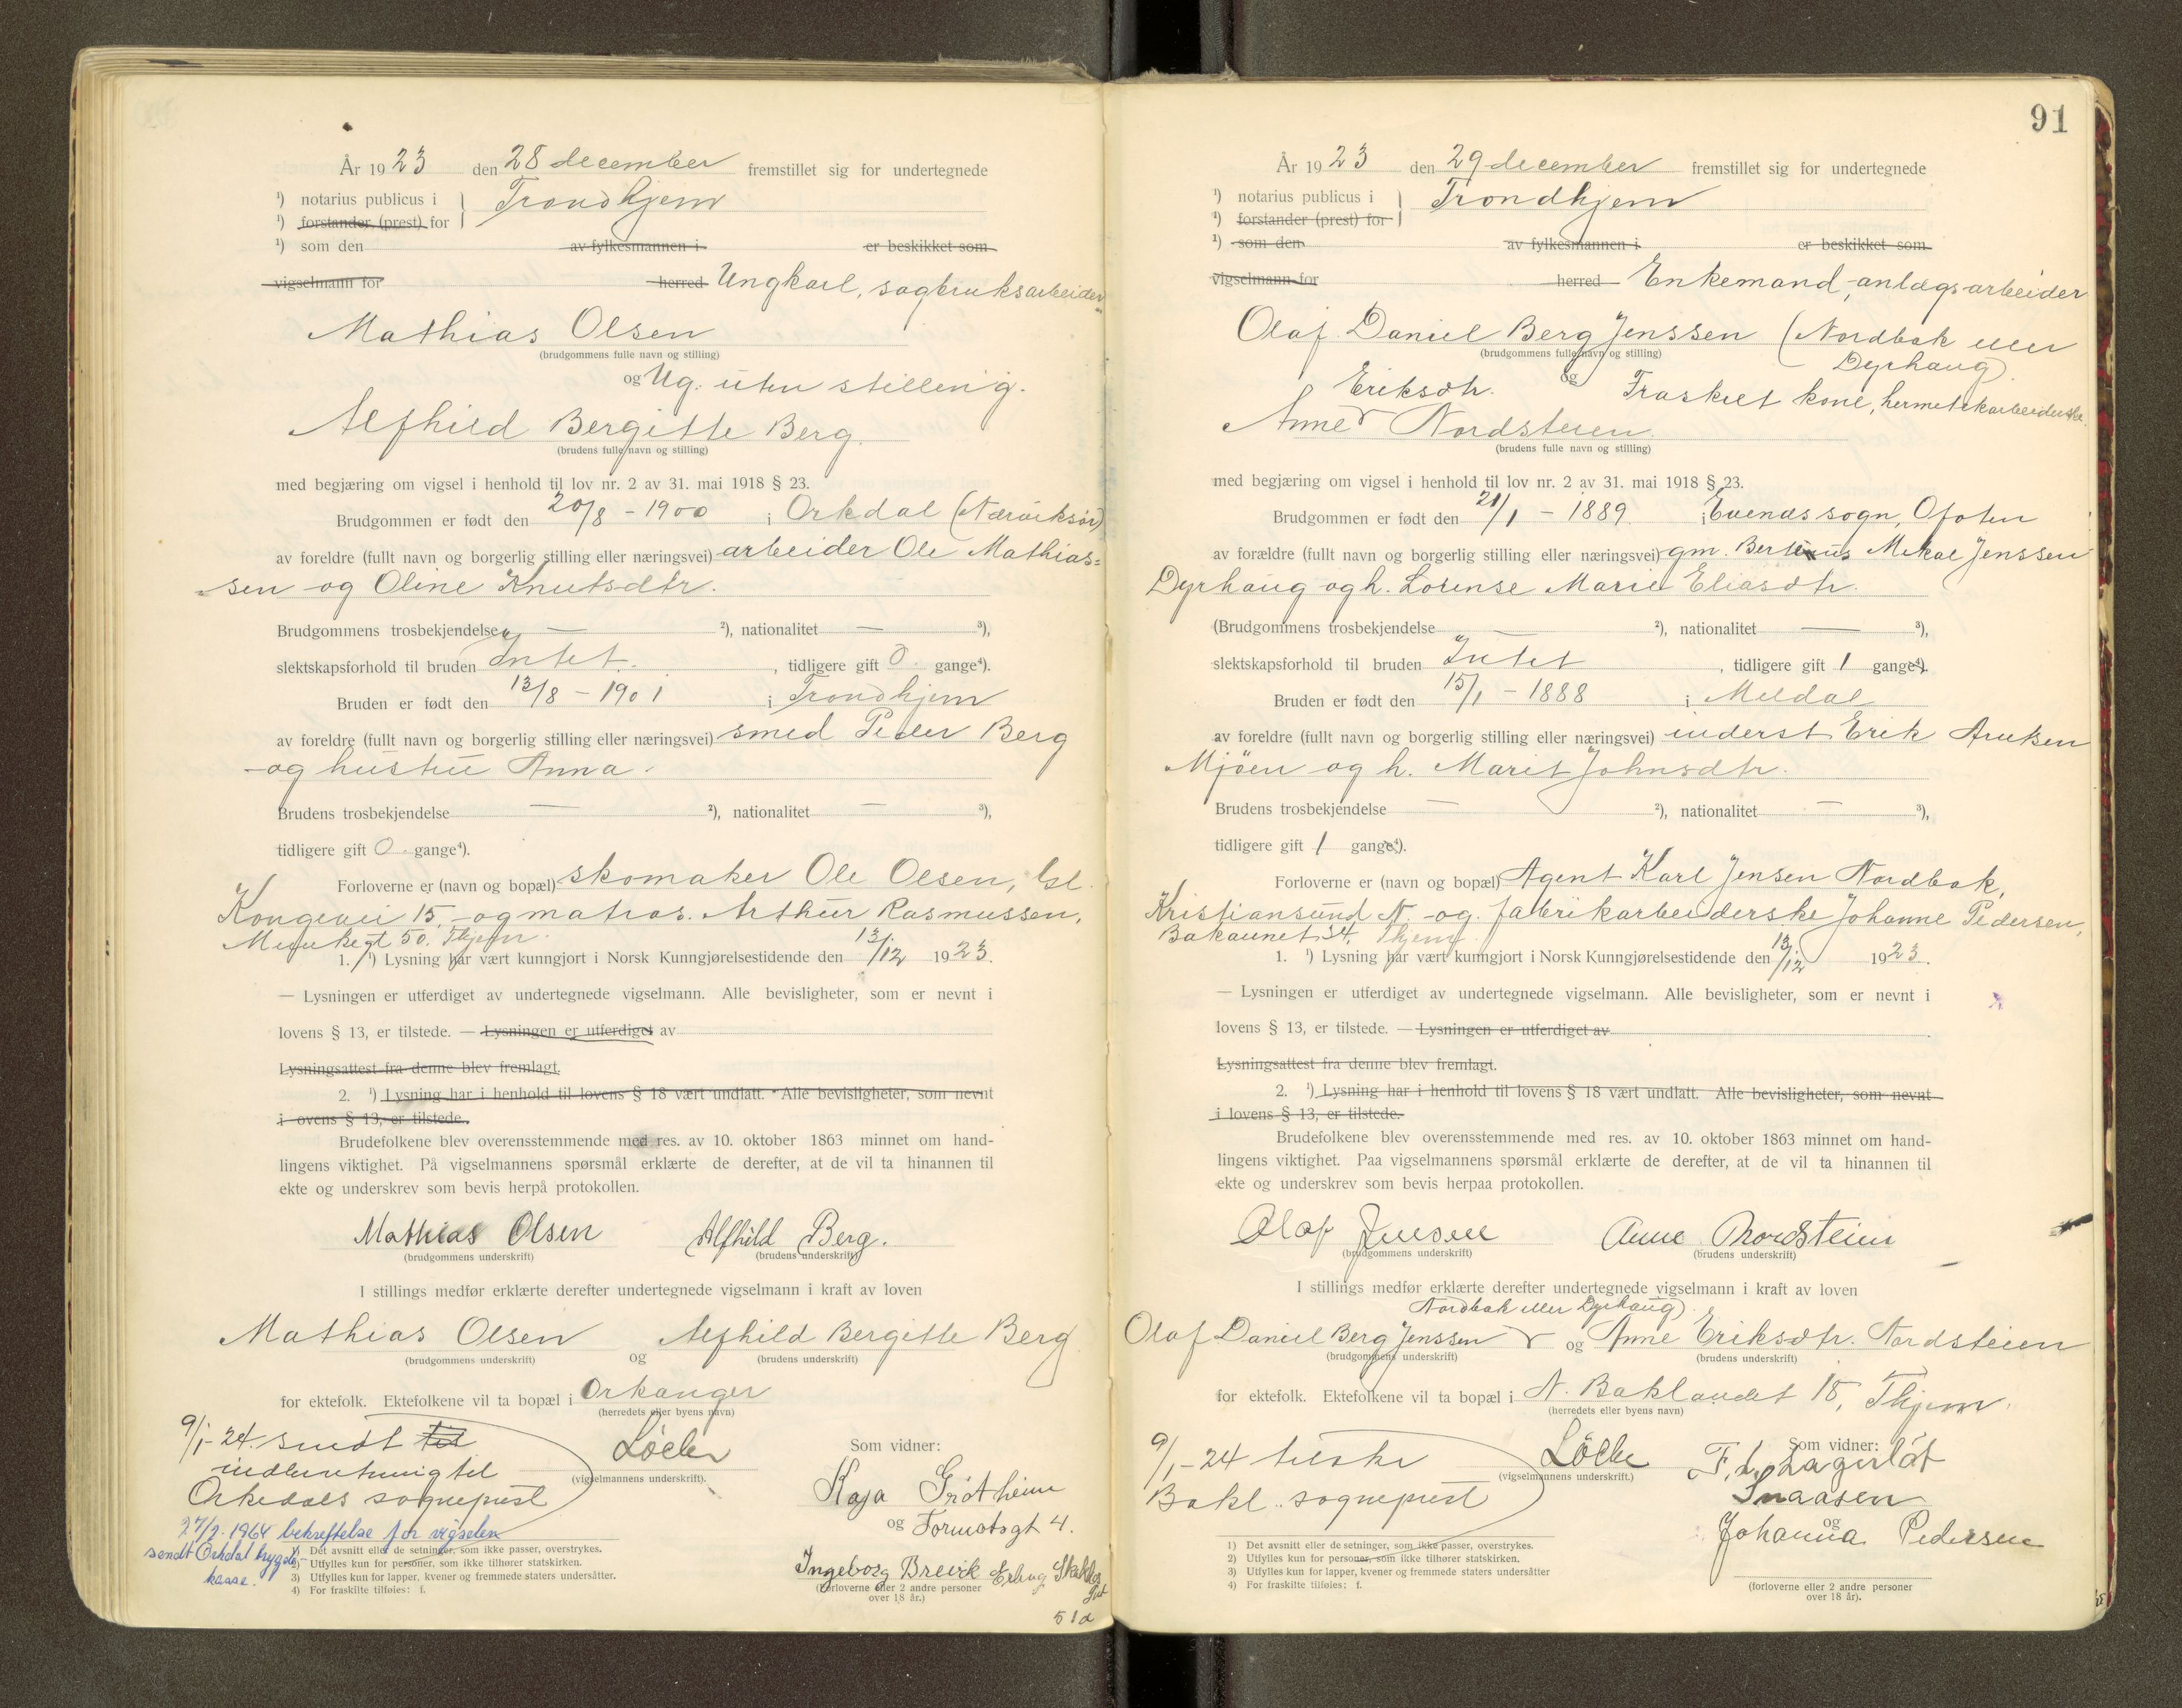 År 1923 den 28 december fremstillet sig for undertegnede
¹) notarius publicus i } Trondhjem
¹) forstander (prest) for
¹) som den av fylkesmannen i er beskikket som
vigselmann for herred Ungkarl, sagbruksarbeider
Mathias Olsen
(brudgommens fulle navn og stilling)
og Ug. uten stilling.
Alfhild Bergitte Berg.
(brudens fulle navn og stilling)
med begjæring om vigsel i henhold til lov nr. 2 av 31. mai 1918 § 23.
Brudgommen er født den 20/8 - 1900 i Orkdal (Nærviksør)
av foreldre (fullt navn og borgerlig stilling eller næringsvei) arbeider Ole Mathias=
sen og Oline Knutsdtr.
Brudgommens trosbekjendelse — ²), nationalitet — ³),
slektskapsforhold til bruden Intet. , tidligere gift 0 gange⁴).
Bruden er født den 13/8 - 1901 i Trondhjem
av foreldre (fullt navn og borgerlig stilling eller næringsvei) smed Peder Berg
og hustru Anna.
Brudens trosbekjendelse — ²), nationalitet — ³),
tidligere gift 0 gange⁴).
Forloverne er (navn og bopæl) skomaker Ole Olsen, Gl.
Kongevei 15, og matros. Arthur Rasmussen,
Munkegt 50. Thjem.
1. ¹) Lysning har vært kunngjort i Norsk Kunngjørelsestidende den 13/12 1923.
— Lysningen er utferdiget av undertegnede vigselmann. Alle bevisligheter, som er nevnt i
lovens § 13, er tilstede. — Lysningen er utferdiget av
Lysningsattest fra denne blev fremlagt.
2. ¹) Lysning har i henhold til lovens § 18 vært undlatt. Alle bevisligheter, som nevnt
i ovens § 13, er tilstede.
Brudefolkene blev overensstemmende med res. av 10. oktober 1863 minnet om hand-
lingens viktighet. På vigselmannens spørsmål erklærte de derefter, at de vil ta hinannen til
ekte og underskrev som bevis herpå protokollen.
Mathias Olsen Alfhild Berg.
(brudgommens underskrift) (brudens underskrift)
I stillings medfør erklærte derefter undertegnede vigselmann i kraft av loven
Mathias Olsen og Alfhild Bergitte Berg
(brudgommens underskrift) (brudens underskrift)
for ektefolk. Ektefolkene vil ta bopæl i Orkanger
(herredets eller byens navn)
9/1-24. sendt til
indberetning til
Orkedals sogneprest
27/2. 1964 bekreftelse for vigselen
sendt Orkdal trygde-
kasse.
Løcke
(vigselmannens underskrift).
Som vidner:
Kaja Grøtheim
og
Ingeborg Breivik Erling
(forloverne eller 2 andre personer
over 18 år.)
51a
1) Det avsnitt eller de setninger, som ikke passer, overstrykes.
2) Utfylles kun for personer, som ikke tilhører statskirken.
3) Utfylles kun for lapper, kvener og fremmede staters undersåtter.
4) For fraskilte tilføies: f.
91
År 1923 den 29 december fremstillet sig for undertegnede
¹) notarius publicus i } Trondhjem
¹) forstander (prest) for
¹) som den av fylkesmannen i er beskikket som
vigselmann for herred Enkemand, anlægsarbeider
Olaf Daniel Berg Jenssen (Nordbak eller
Dyrhaug)
(brudgommens fulle navn og stilling)
og Fraskilt kone, hermetikarbeiderske.
Eriksdtr.
Anne Nordsteien
(brudens fulle navn og stilling)
med begjæring om vigsel i henhold til lov nr. 2 av 31. mai 1918 § 23.
Brudgommen er født den 21/1 - 1889 i Evenæs sogn, Ofoten
av forældre (fullt navn og borgerlig stilling eller næringsvei) gm. Bertinus Mikal Jenssen
Dyrhaug og h. Lorense Marie Eliasdtr.
(Brudgommens trosbekjendelse — ²), nationalitet — ³),
slektskapsforhold til bruden Intet , tidligere gift 1 gange⁴).
Bruden er født den 15/1 - 1888 i Meldal
av foreldre (fullt navn og borgerlig stilling eller næringsvei) inderst Erik Arntsen
Mjöen og h. Marit Johnsdtr.
Brudens trosbekjendelse — ²), nationalitet — ³),
tidligere gift 1 gange⁴).
Forloverne er (navn og bopæl) Agent Karl Jensen Nordbak,
Kristiansund N. og fabrikarbeiderske Johanne Pedersen,
Bakaunet 34, Thjem
1. ¹) Lysning har vært kunngjort i Norsk Kunngjørelsestidende den 13/12 1923.
— Lysningen er utferdiget av undertegnede vigselmann. Alle bevisligheter, som er nevnt i
lovens § 13, er tilstede. — Lysningen er utferdiget av
Lysningsattest fra denne blev fremlagt.
2. ¹) Lysning har i henhold til lovens § 18 vært undlatt. Alle bevisligheter, som nevnt
i lovens § 13, er tilstede.
Brudefolkene blev overensstemmende med res. av 10. oktober 1863 minnet om hand-
lingens viktighet. Paa vigselmannens spørsmål erklærte de derefter, at de vil ta hinannen til
ekte og underskrev som bevis herpaa protokollen.
Olaf Jensen Anne Nordsteien
(brudgommens underskrift) (brudens underskrift)
I stillings medfør erklærte derefter undertegnede vigselmann i kraft av loven
Nordbak eller Dyrhaug)
Olaf Daniel Berg Jenssen og Anne Eriksdtr. Nordsteien
(brudgommens underskrift) (brudens underskrift)
for ektefolk. Ektefolkene vil ta bopæl i N. Baklandet 18, Thjem.
(herredets eller byens navn)
9/1-24 tilskr
Bakl. sogneprest
Löcke
(vigselmannens underskrift.)
Som vidner:
Snaasen
og
Johanna Pedersen
(forloverne eller 2 andre personer
over 18 år).
1) Det avsnitt eller de setninger, som ikke passer, overstrykes.
2) Utfylles kun for personer, som ikke tilhører statskirken.
3) Utfylles kun for lapper, kvener og fremmede staters undersåtter
4) For fraskilte tilføies: f.